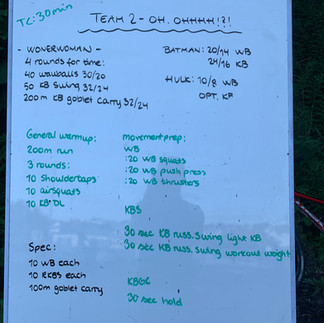 TC: 30min
TEAM 2 - OH. OHHHH!?!
- WONERWOMAN -
4 rounds for time:
40 wallballs 30/20
50 KB swing 32/24
200m KB goblet carry 32/24
BATMAN: 20/14 WB
24/16 KB
HULK: 10/8 WB
OPT. KB
General warmup:
200m run
3 rounds:
10 Shouldertaps
10 airsquats
10 KB DL
movementprep:
WB
:20 WB squats
:20 WB push press
:20 WB thrusters
KBS
30 sec KB russ. swing light KB
30 sec KB russ. swing workout weight
KBGC
30 sec hold
Spec:
10 WB each
10 RKBS each
100m goblet carry